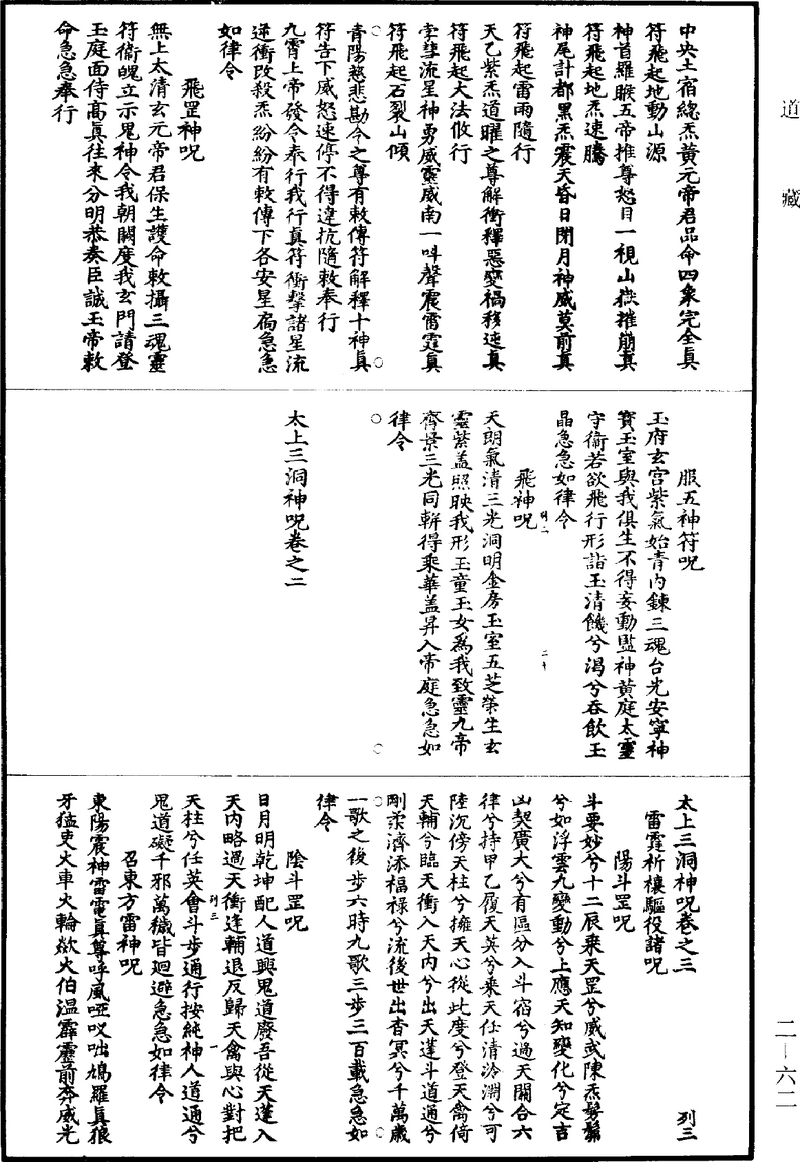 道藏
中央土宿總炁黃元帝君品命四象完全真
符飛起地動山源
神首羅睺五帝推尊怒目一視山嶽摧崩真
符飛起地炁速騰
神尾計都黑炁震天昏日閉月神威莫前真
符飛起雷雨隨行
天乙紫炁道曜之尊解衝釋惡變禍移迍真
符飛起大法攸行
孛彗流星神勇威靈威南一呌聲震雷霆真
符飛起石裂山傾
青陽慈悲勘令之尊有敕傳符解釋十神真
符告下威怒速停不得違抗隨敕奉行
九霄上帝發令奉行我行真符衝擊諸星流
逆衝改殺炁紛紛有敕傳下各安星扃急急
如律令
飛罡神呪
無上太清玄元帝君保生護命敕攝三魂靈
符衛魄立示鬼神令我朝闕度我玄門請登
玉庭面侍高真往來分明恭奏臣誠玉帝敕
命急急奉行
服五神符呪
玉府玄宮紫氣始青內鍊三魂台光安寧神
寶玉室與我俱生不得妄動監神黃庭太靈
守衛若欲飛行形詣玉清饑兮渴兮吞飲玉
晶急急如律令
列二 二十
飛神呪
天朗氣清三光洞明金房玉室五芝榮生玄
靈紫盖照映我形玉童玉女為我致靈九帝
齊景三光同軿得乘華盖昇入帝庭急急如
律令
太上三洞神呪卷之二
太上三洞神呪卷之三 列三
雷霆祈禳驅役諸呪
陽斗罡呪
斗要妙兮十二辰乘天罡兮威武陳炁髣髴
兮如浮雲九變動兮上應天知變化兮定吉
凶契廣大兮有區分入斗宿兮過天關合六
律兮持甲乙履天英兮乘天任清泠淵兮可
陸沉傍天柱兮擁天心從此度兮登天禽倚
天輔兮臨天衝入天內兮出天蓬斗道通兮
剛柔濟添福祿兮流後世出杳冥兮千萬歲
一歌之後步六時九歌三步三百載急急如
律令
陰斗罡呪
日月明乾坤配人道興鬼道廢吾從天蓬入
天內略過天衝逢輔退反歸天禽與心對把
列三 一
天柱兮任英會斗步通行按純神人道通兮
鬼道礙千邪萬穢皆迴避急急如律令
召東方雷神呪
東陽震神雷電真尊呼風啞叹咄鳩羅真狼
牙猛吏火車火輪欻火伯溫霹靂前奔威光
二—六二